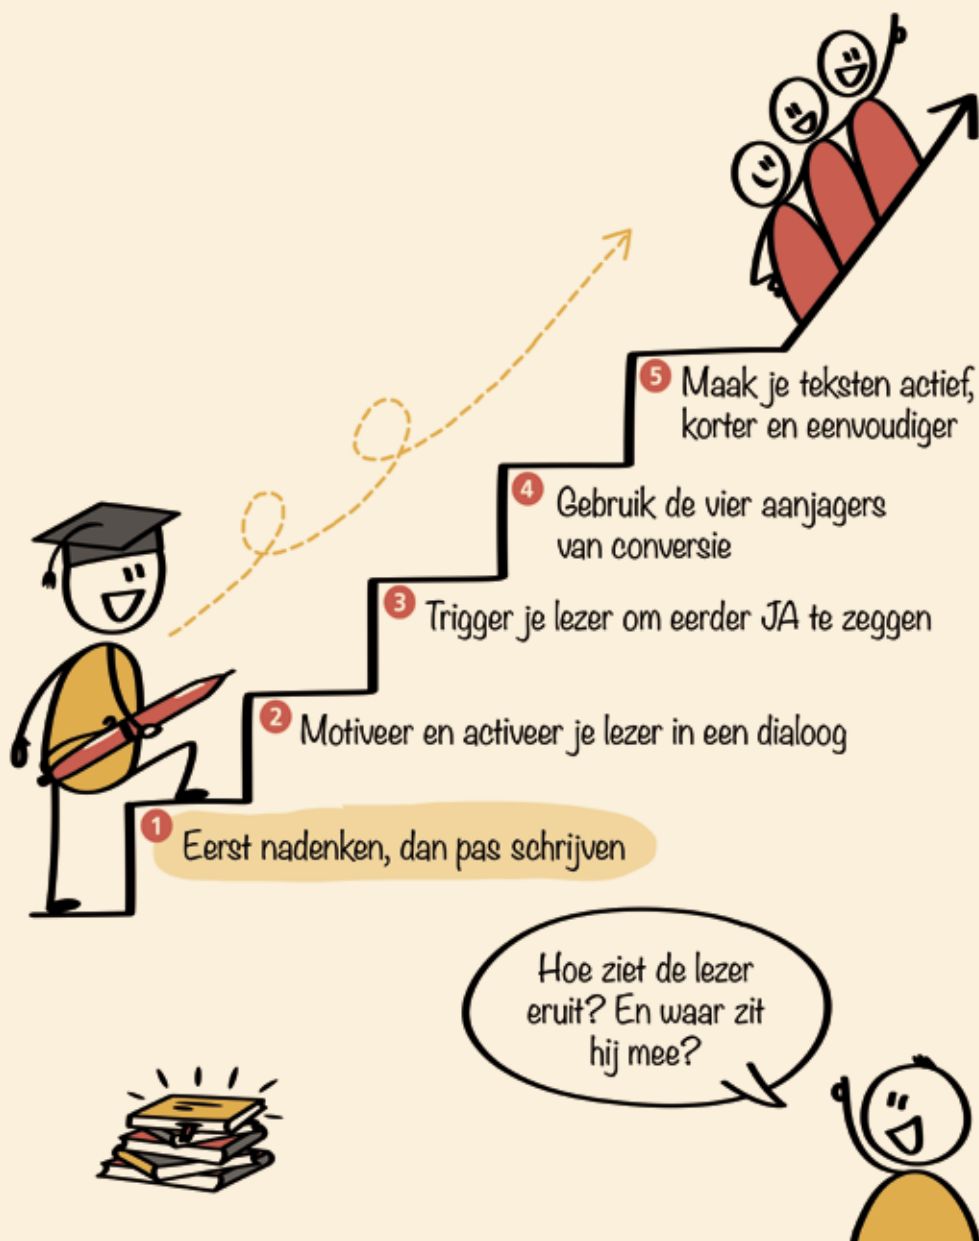 5 Maak je teksten actief,
korter en eenvoudiger
4 Gebruik de vier aanjagers
van conversie
3 Trigger je lezer om eerder JA te zeggen
2 Motiveer en activeer je lezer in een dialoog
1 Eerst nadenken, dan pas schrijven
Hoe ziet de lezer
eruit? En waar zit
hij mee?